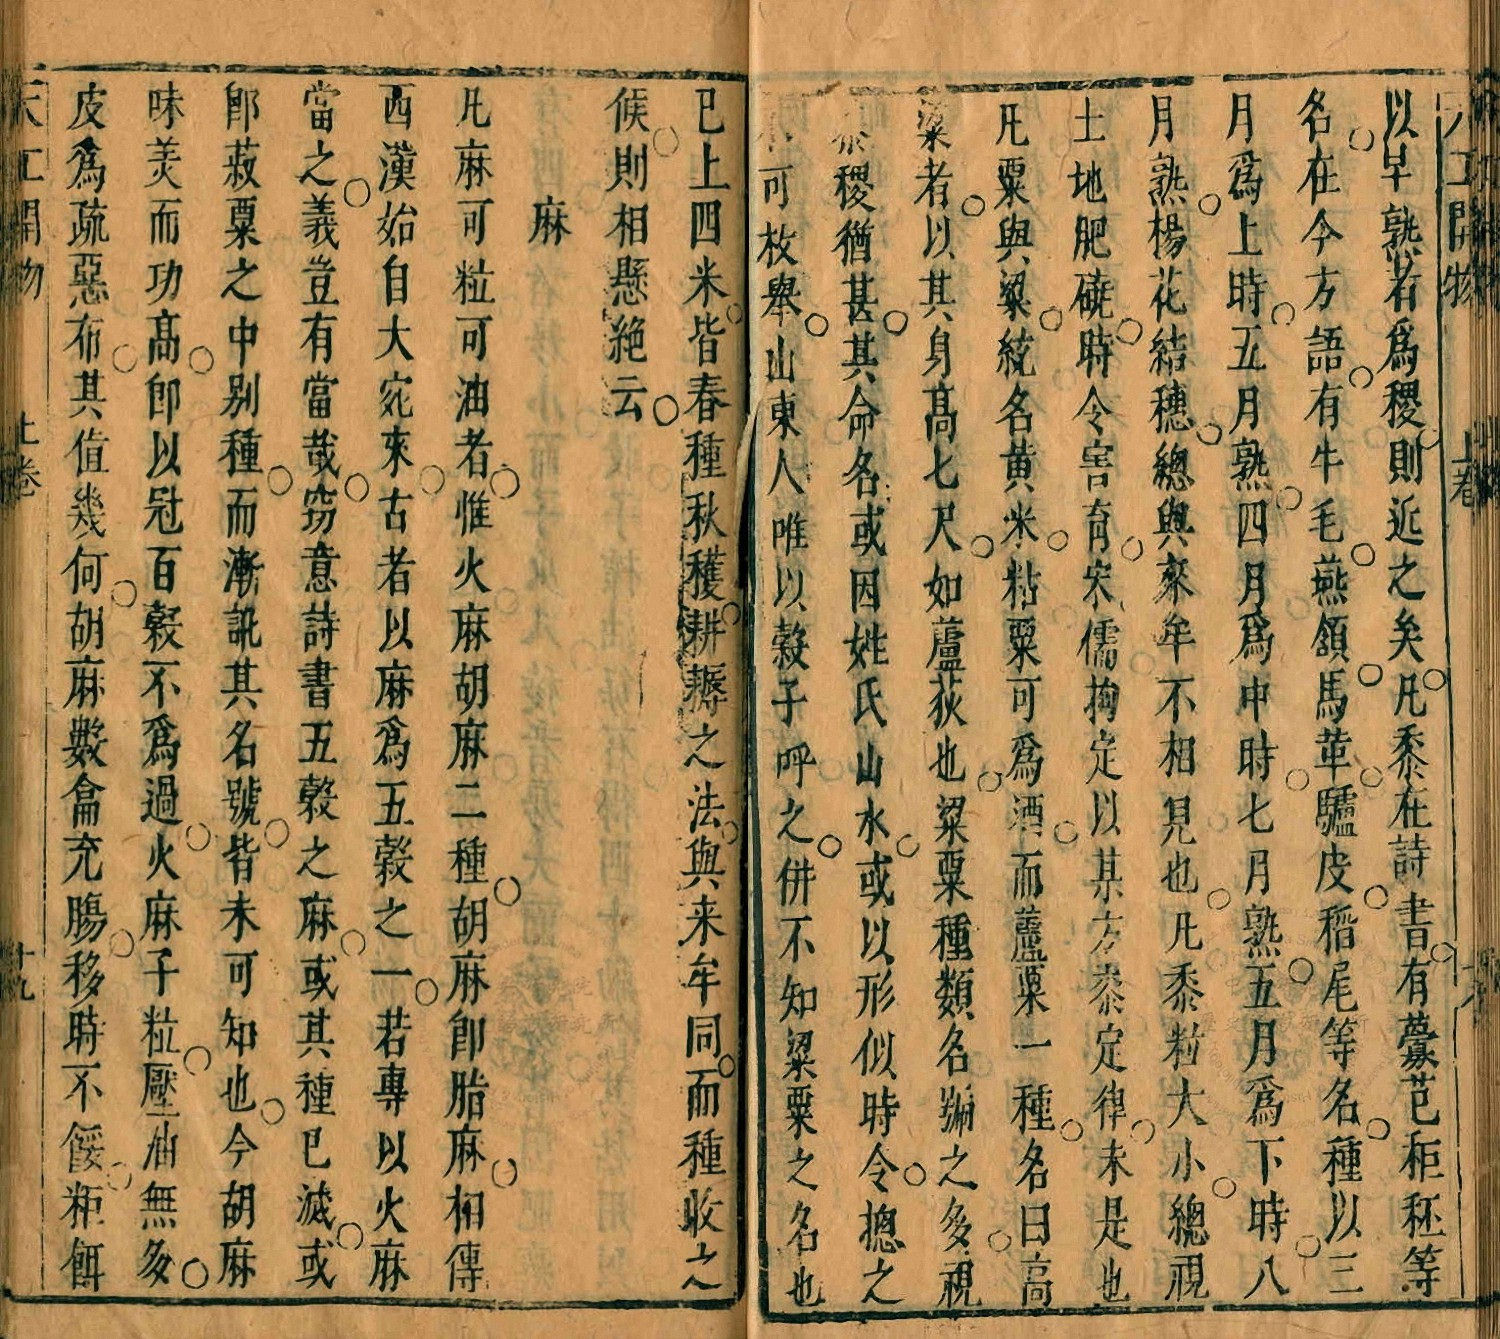 以早熟者為稷則近之矣凡黍在詩書有虋芑秬秠等
名在今方語有牛毛燕頷馬革驢皮稻尾等名種以三
月為上時五月熟四月為中時七月熟五月為下時八
月熟楊花結穗總與來牟不相見也凡黍粒大小總視
土地肥磽時令害育宋儒拘定以某方黍定律未是也
凡粟與粱統名黃米粘粟可為酒而蘆粟一種名曰高
粱者以其身高七尺如蘆荻也粱粟種類名號之多視
黍稷猶甚其命名或因姓氏山水或以形似時令摠之
可枚舉山東人唯以穀子呼之併不知粱粟之名也
已上四米皆春種秋穫耕耨之法與来牟同而種收之
候則相懸絕云
麻
凡麻可粒可油者惟火麻胡麻二種胡麻即脂麻相傳
西漢始自大宛來古者以麻為五穀之一若專以火麻
當之義豈有當哉窃意詩書五穀之麻或其種已滅或
即菽粟之中別種而漸訛其名號皆未可知也今胡麻
味美而功高即以冠百穀不為過火麻子粒壓油無多
皮為疏惡布其值幾何胡麻數龠充腸移時不餒粔餌
天工開物 上卷 十九